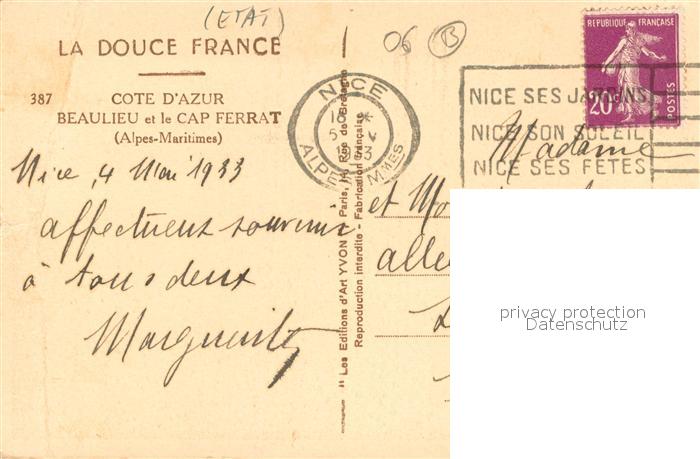 (ETAT)
LA DOUCE FRANCE
387
COTE D'AZUR
BEAULIEU et le CAP FERRAT
(Alpes-Maritimes)
Nice, 4 Mai 1933
affectueux souvenir
à tous deux
Marguerite
" Les Editions d'Art YVON - Paris, 14, Rue de Bretagne
Reproduction interdite - Fabrication Française
06 B
NICE
ALPES MMES
NICE SES JARDINS
NICE SON SOLEIL
NICE SES FÊTES
REPUBLIQUE FRANÇAISE
20c
POSTES
Madame
et
privacy protection
Datenschutz